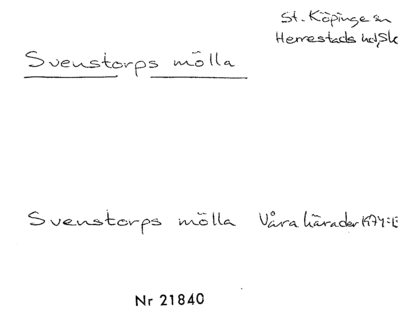 St. Köpinge sn
Herrestads hd, Sk
Svenstorps mölla
Svenstorps mölla Våra härader
Nr 21840